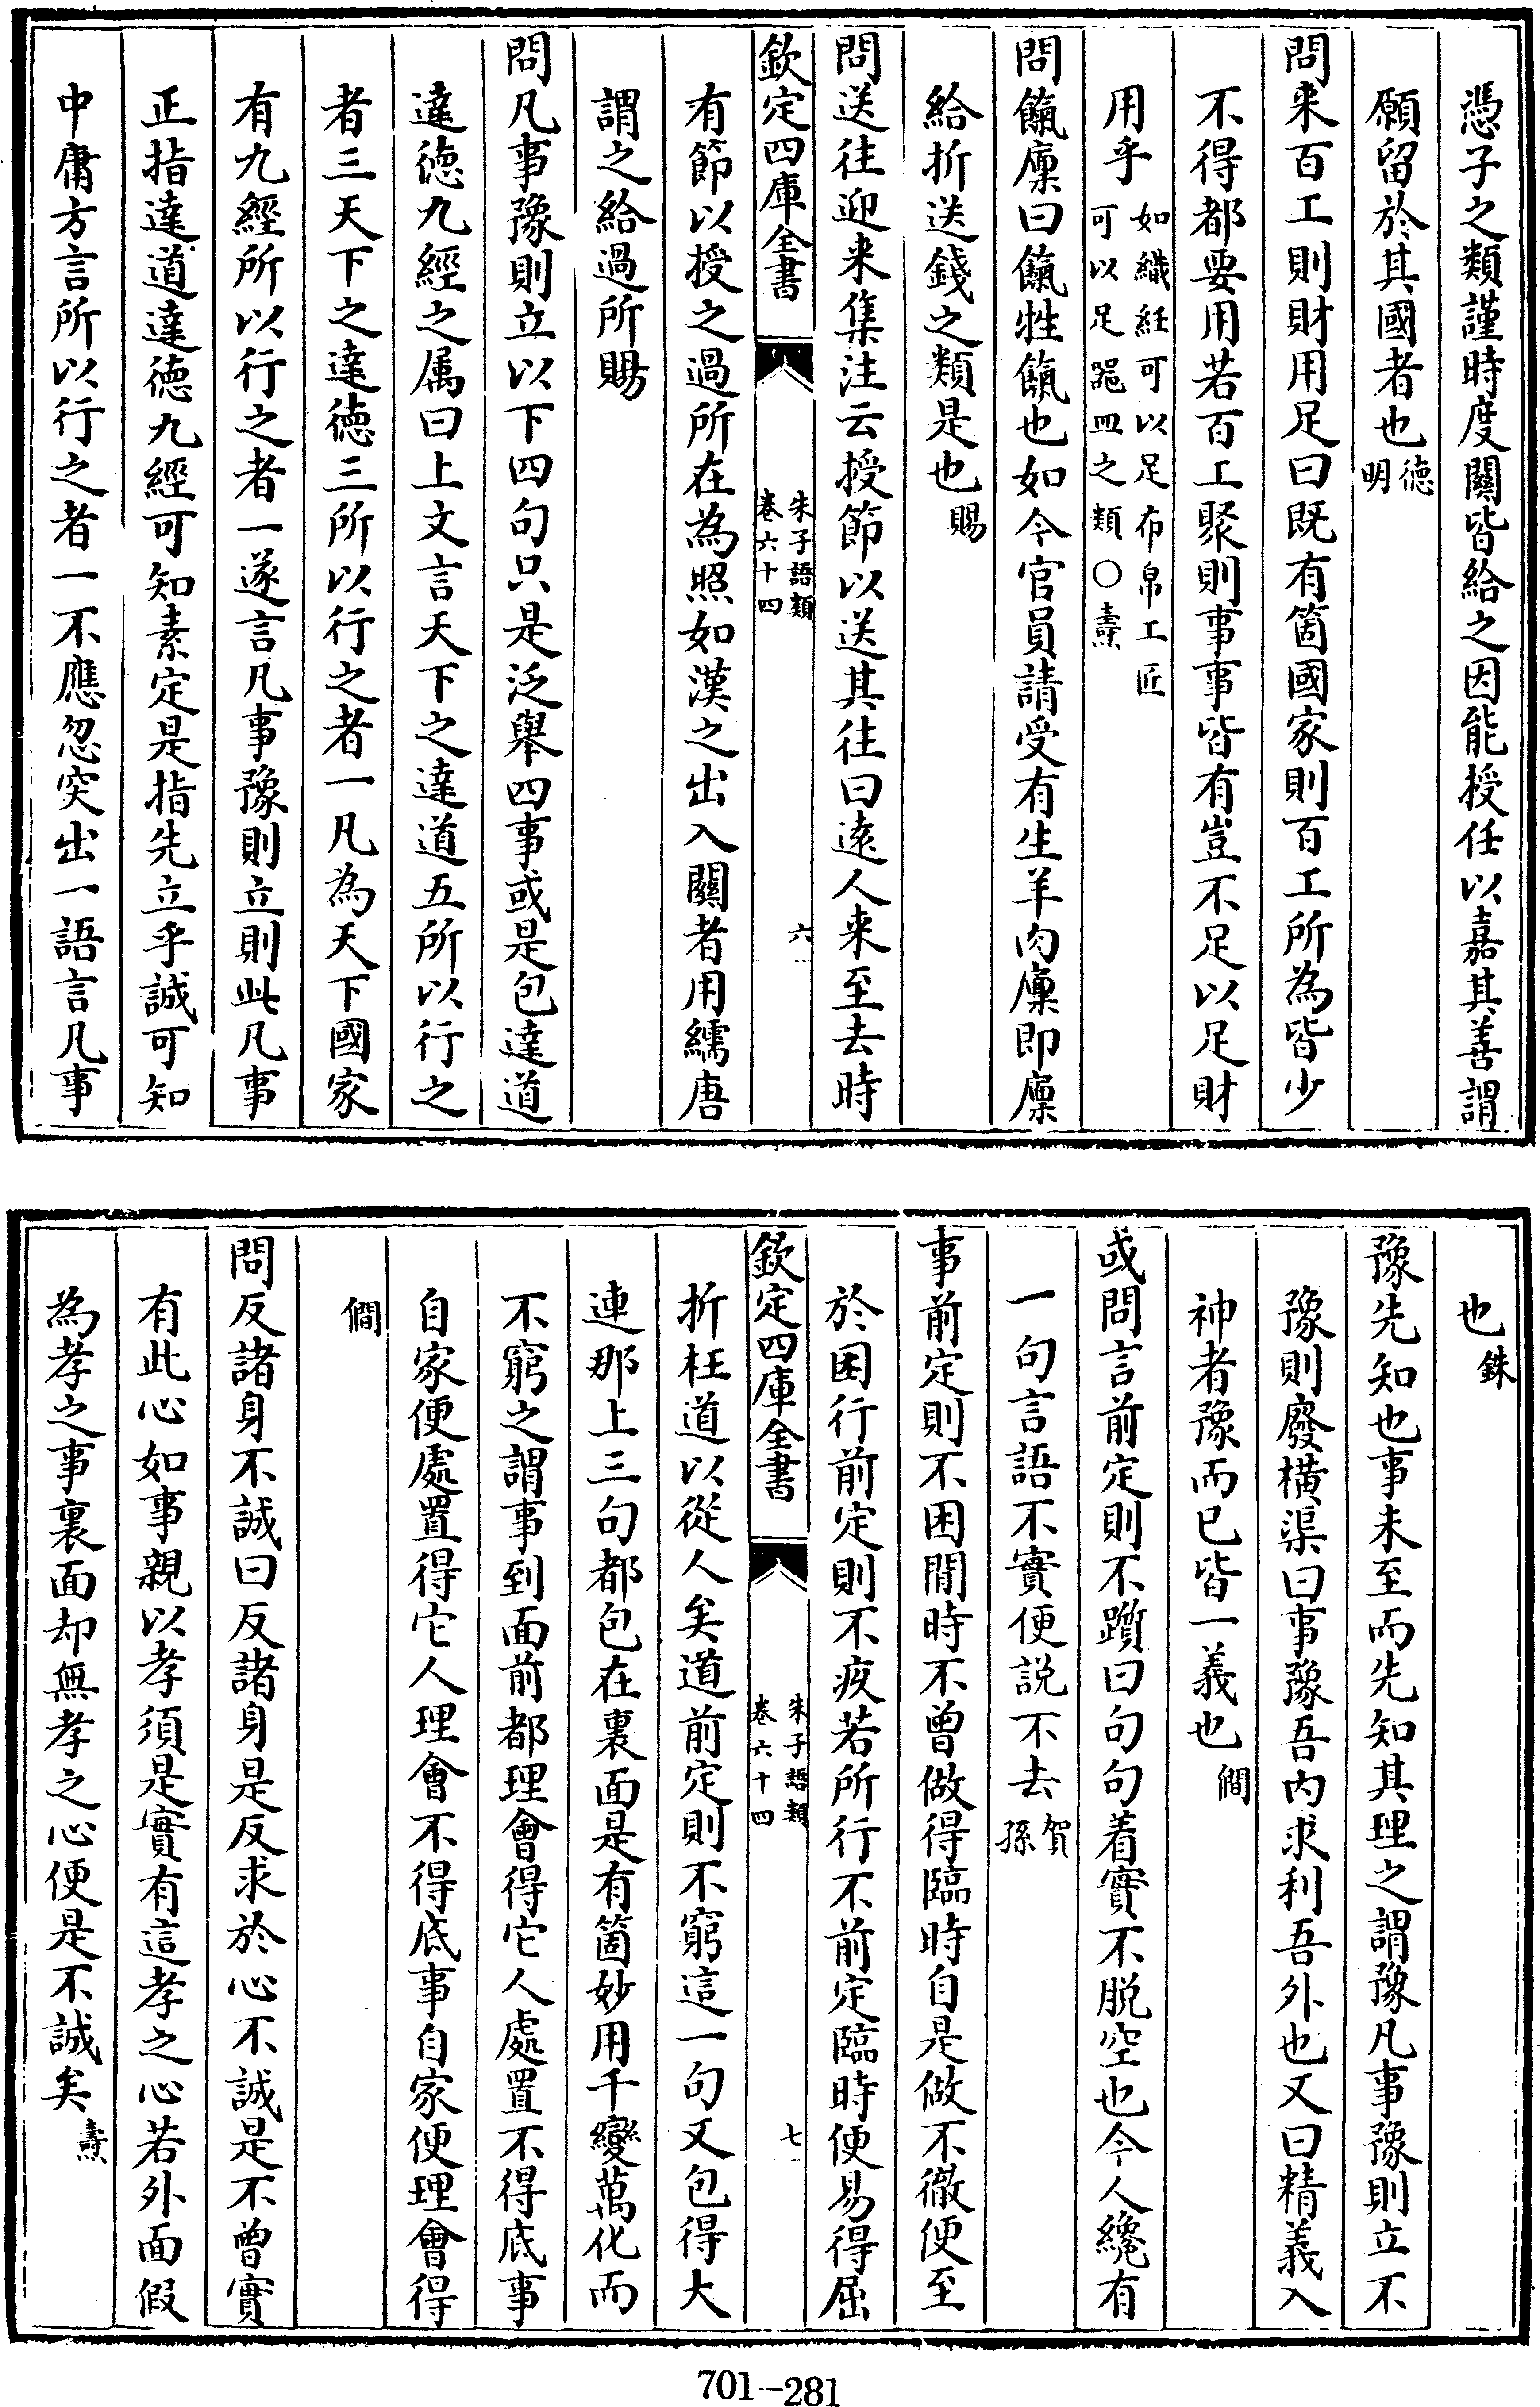 憑子之類謹時度關皆給之因能授任以嘉其善謂
願留於其國者也德明
問来百工則財用足曰既有箇國家則百工所為皆少
不得都要用若百工聚則事事皆有豈不足以足財
用乎如織紝可以足布帛工匠可以足噐皿之類○燾
問餼廩曰餼牲餼也如今官員請受有生羊肉廩即廩
給折送錢之類是也賜
問送往迎来集注云授節以送其往曰逺人来至去時
欽定四庫全書 朱子語類卷六十四 六
有節以授之過所在為照如漢之出入關者用繻唐
謂之給過所賜
問凡事豫則立以下四句只是泛舉四事或是包達道
達德九經之属曰上文言天下之達道五所以行之
者三天下之達德三所以行之者一凡為天下國家
有九經所以行之者一遂言凡事豫則立則此凡事
正指達道達德九經可知素定是指先立乎誠可知
中庸方言所以行之者一不應忽突出一語言凡事
也銖
豫先知也事未至而先知其理之謂豫凡事豫則立不
豫則廢橫渠曰事豫吾内求利吾外也又曰精義入
神者豫而已皆一義也僩
或問言前定則不躓曰句句着實不脱空也今人纔有
一句言語不實便説不去賀孫
事前定則不困閒時不曾做得臨時自是做不徹便至
於困行前定則不疚若所行不前定臨時便易得屈
欽定四庫全書 朱子語類卷六十四 七
折枉道以從人矣道前定則不窮這一句又包得大
連那上三句都包在裏面是有箇妙用千變萬化而
不窮之謂事到面前都理會得它人處置不得底事
自家便處置得它人理會不得底事自家便理會得
僩
問反諸身不誠曰反諸身是反求於心不誠是不曾實
有此心如事親以孝須是實有這孝之心若外面假
為孝之事裏面却無孝之心便是不誠矣燾
701-281